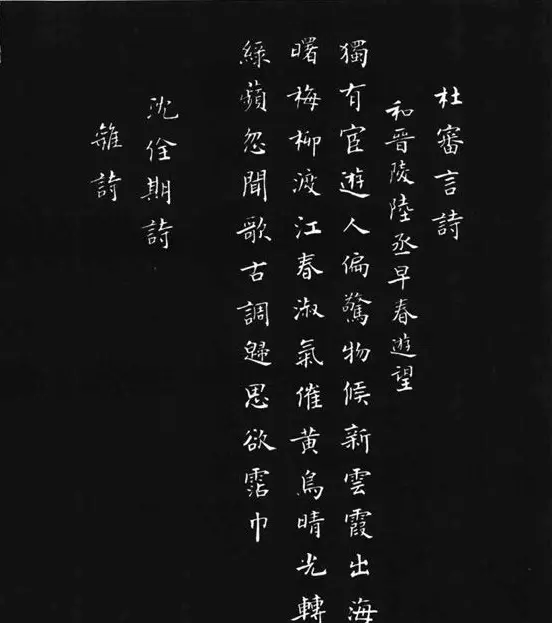 杜審言詩
和晉陵陸丞早春遊望
獨有宦遊人偏驚物候新雲霞出海
曙梅柳渡江春淑氣催黃鳥晴光轉
綠蘋忽聞歌古調歸思欲霑巾
沈佺期詩
雜詩